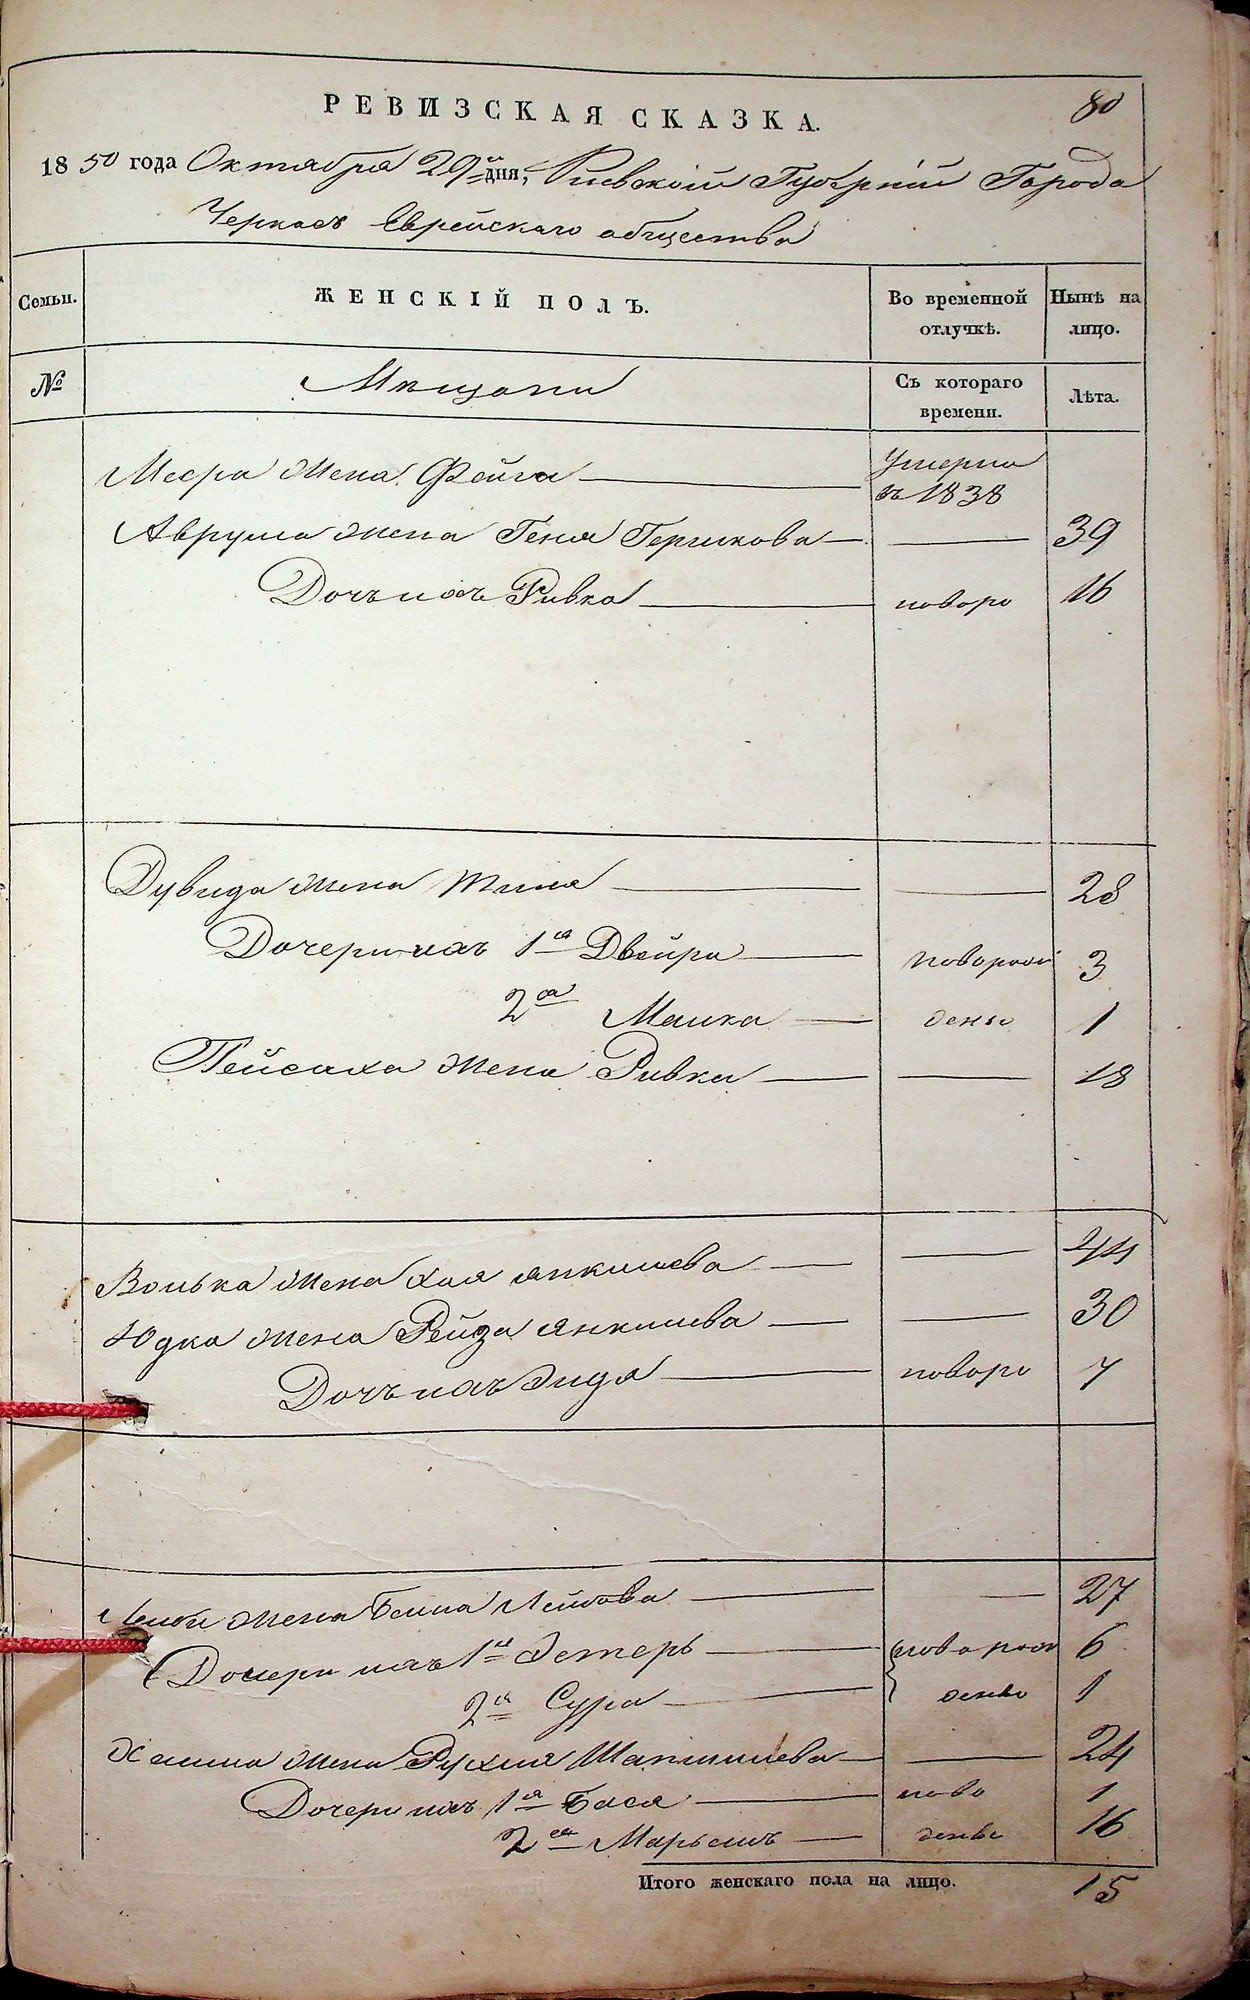 80
РЕВИЗСКАЯ СКАЗКА.
1850 года Октября 29го дня, Киевской Губерніи Города
Черкасъ Еврейскаго общества
Семьи.
ЖЕНСКІЙ ПОЛЪ.
Во временной отлучкѣ.
Нынѣ на лицо.
№
Мѣщани
Съ котораго времени.
Лѣта.
жена Фейга Умерла въ 1838
Аврума жена Геня Гершкова 39
Дочь ихъ Ривка новоро 16
Дувида жена 28
Дочери ихъ 1я Двейра новорож 3
2я Малка дены 1
Пейсаха жена Ривка 18
Волька жена Хая Янкилева 44
Юдка жена Рейза Янкилева 30
Дочь ихъ новоро 7
жена Бейла Лейбова 27
Дочери ихъ 1я Эстеръ новорож 6
2я Сура дены 1
жена Рухля 24
Дочери ихъ 1я Бася ново 1
2я Марьемъ дены 16
Итого женскаго пола на лицо. 15